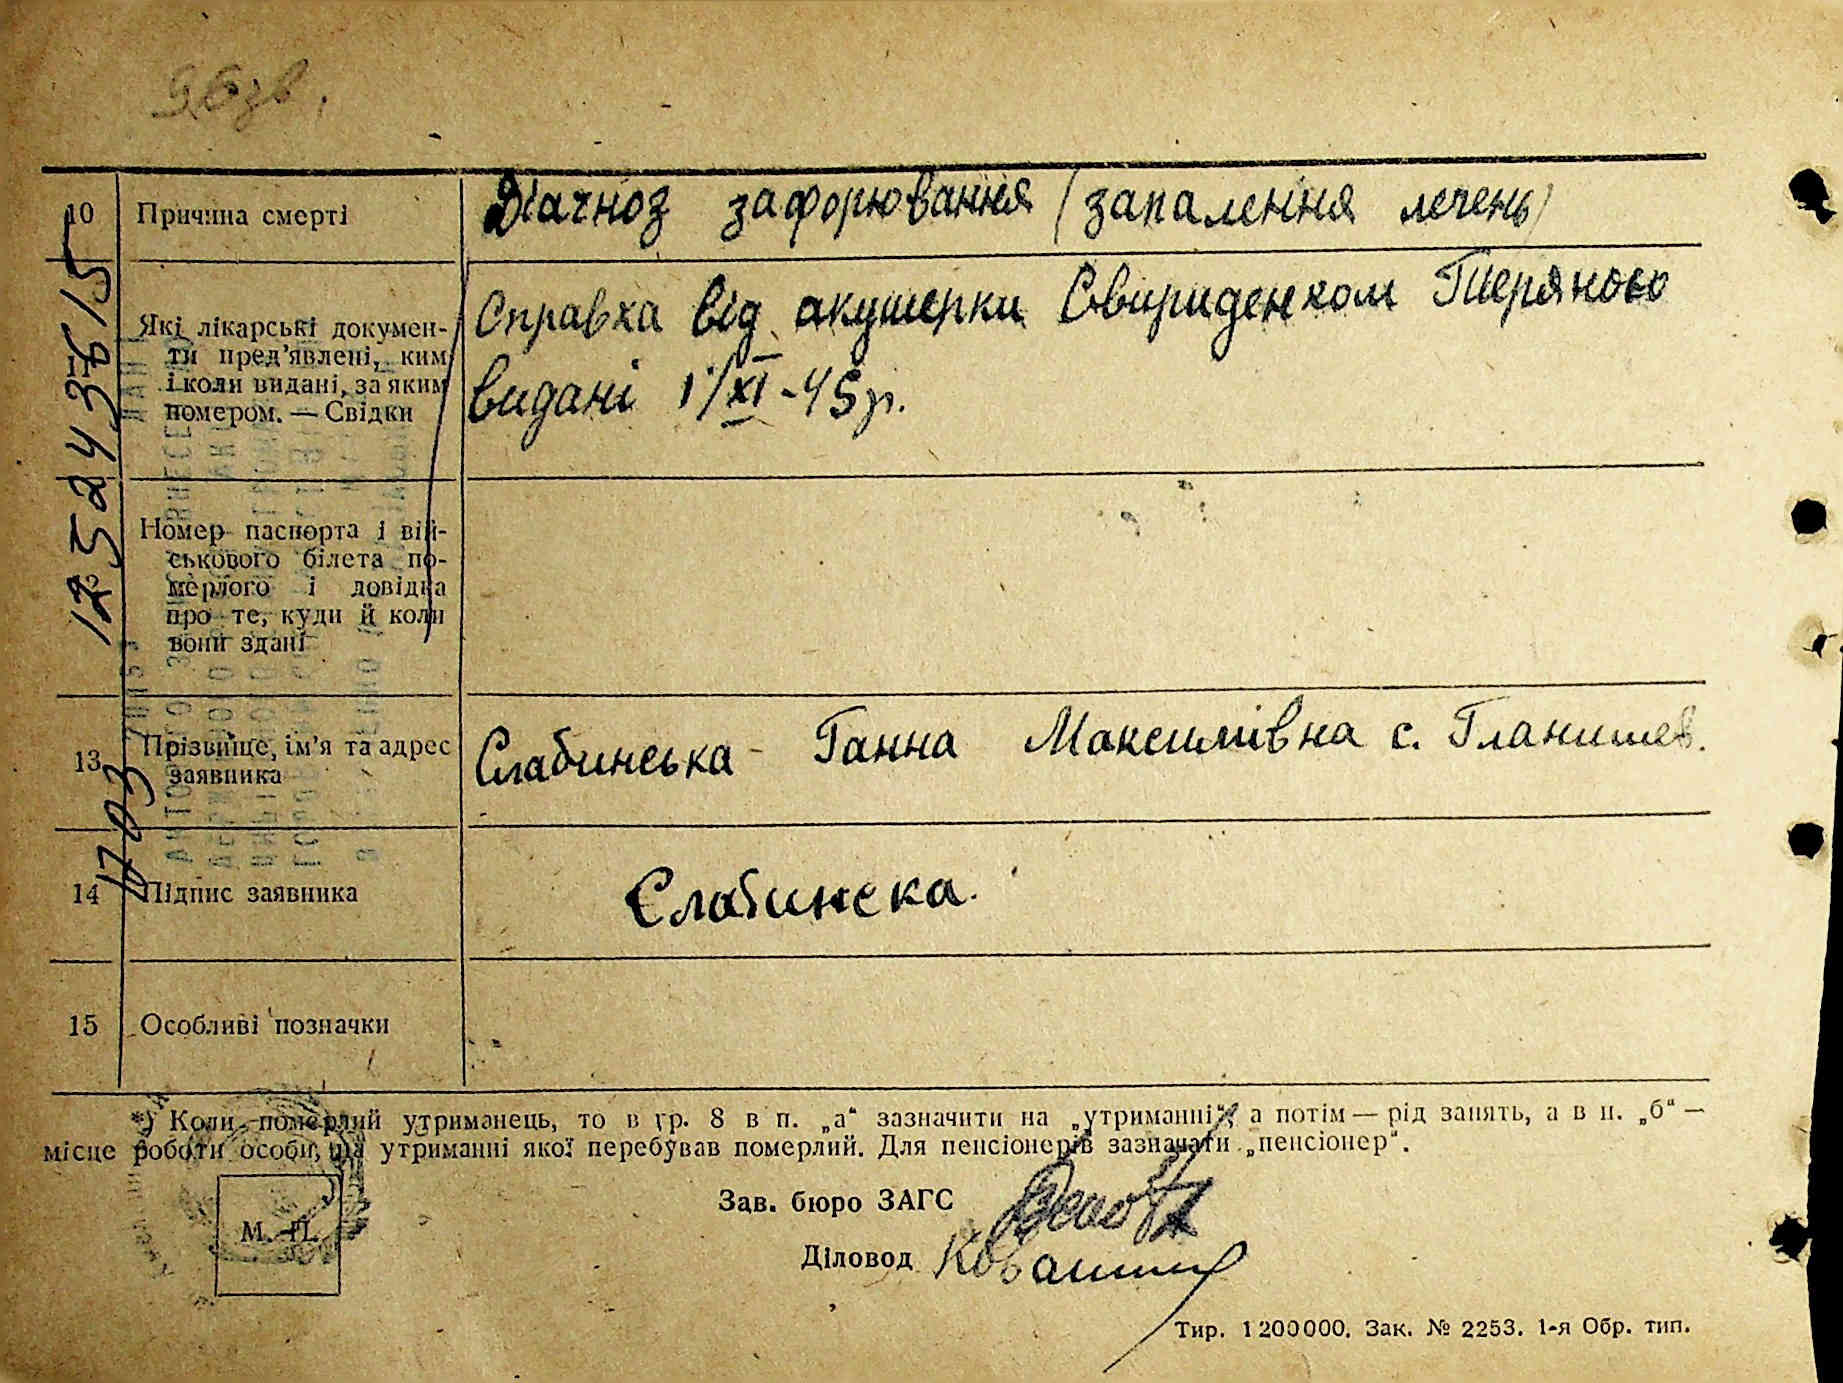 10 Причина смерті Діагноз зафорювання (запалення лечень)
Які лікарські докумен-
ти пред’явлені, ким
і коли видані, за яким
номером. — Свідки
Справка від акушерки Свириденком
видані 1/XI-45 р.
Номер паспорта і вій-
ськового білета по-
мерлого і довідка
про те, куди й коли
вони здані
13 Прізвище, ім’я та адрес
заявника
Слабинська Ганна Максимівна с. Гланишев.
14 Підпис заявника Слабинска.
15 Особливі позначки
*) Коли померлий утриманець, то в гр. 8 в п. „а“ зазначити на „утриманні“, а потім — рід занять, а в п. „б“ —
місце роботи особи, на утриманні якої перебував померлий. Для пенсіонерів зазначати „пенсіонер“.
Зав. бюро ЗАГС
М. П.
Діловод
Тир. 1200000. Зак. № 2253. 1-я Обр. тип.
1703